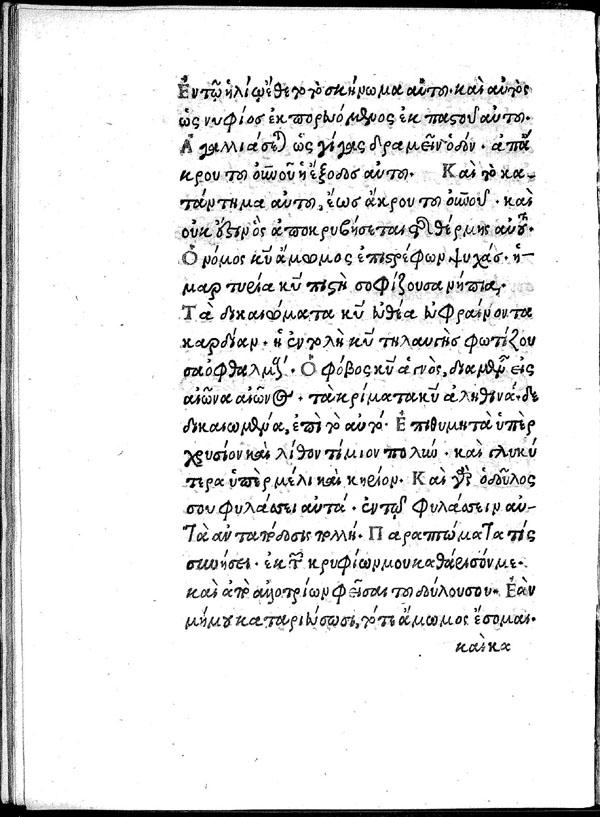 Ἐν τῷ ἡλίῳ ἔθετο τὸ σκήνωμα αὐτοῦ· καὶ αὐτὸς
ὡς νυμφίος ἐκπορευόμενος ἐκ παστοῦ αὐτοῦ·
Ἀγαλλιάσεται ὡς γίγας δραμεῖν ὁδόν· ἀπ' ἄ-
κρου τοῦ οὐρανοῦ ἡ ἔξοδος αὐτοῦ· Καὶ τὸ κα-
τάντημα αὐτοῦ, ἕως ἄκρου τοῦ οὐρανοῦ· καὶ
οὐκ ἔστιν ὃς ἀποκρυβήσεται τῆς θέρμης αὐτοῦ·
Ὁ νόμος κυ ἄμωμος ἐπιστρέφων ψυχάς· ἡ
μαρτυρία κυ πιστὴ σοφίζουσα νήπια,
Τὰ δικαιώματα κυ εὐθέα εὐφραίνοντα
καρδίαν· ἡ ἐντολὴ κυ τηλαυγὴς φωτίζου
σα ὀφθαλμούς· Ὁ φόβος κυ ἁγνὸς, διαμένων εἰς
αἰῶνα αἰῶνος· τὰ κρίματα κυ ἀληθινά· δε
δικαιωμένα, ἐπὶ τὸ αὐτό· Ἐπιθυμητὰ ὑπὲρ
χρυσίον καὶ λίθον τίμιον πολύν· καὶ γλυκύ
τερα ὑπὲρ μέλι καὶ κηρίον· Καὶ γὰρ ὁ δοῦλός
σου φυλάσσει αὐτά· ἐν τῷ φυλάσσειν αὐ-
τὰ ἀνταπόδοσις πολλή· Παραπτώματα τίς
συνήσει· ἐκ τῶν κρυφίων μου καθάρισόν με·
καὶ ἀπὸ ἀλλοτρίων φεῖσαι τοῦ δούλου σου· Ἐὰν
μή μου κατακυριεύσωσι, τότε ἄμωμος ἔσομαι·
καὶ κα